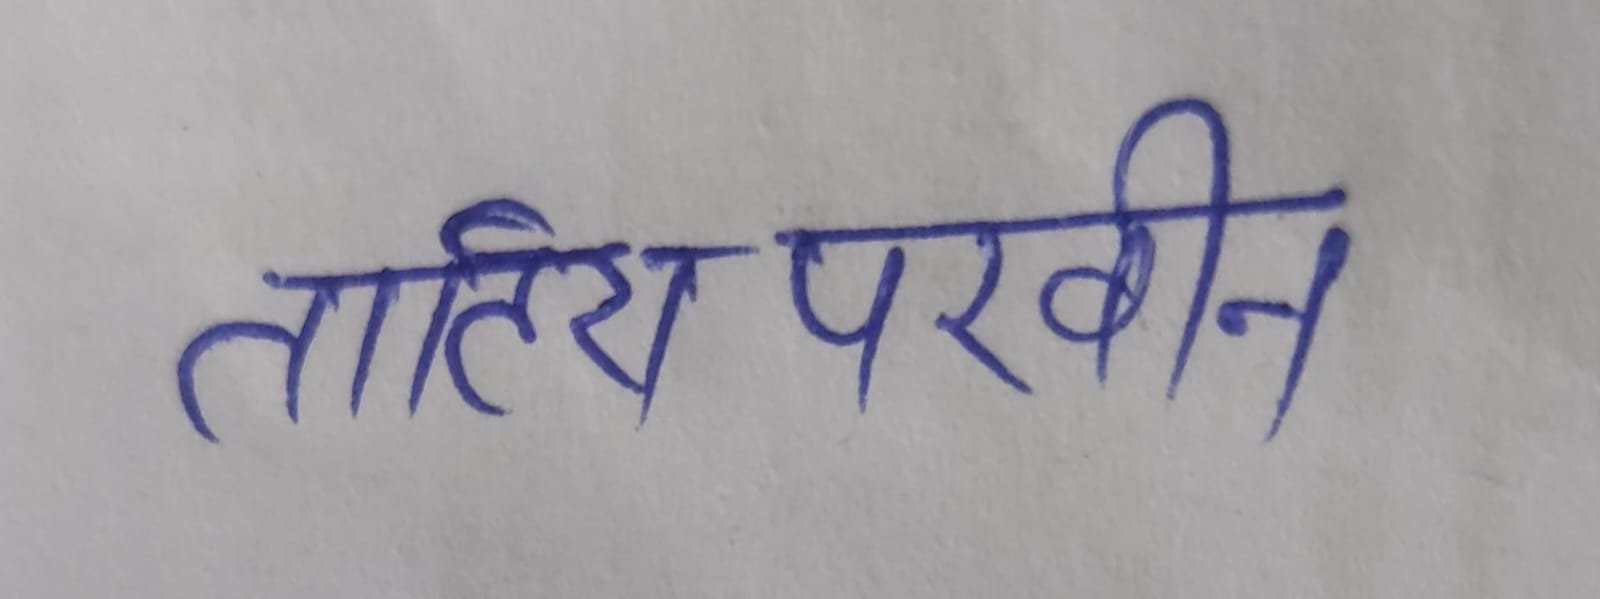 तालिय परवीन